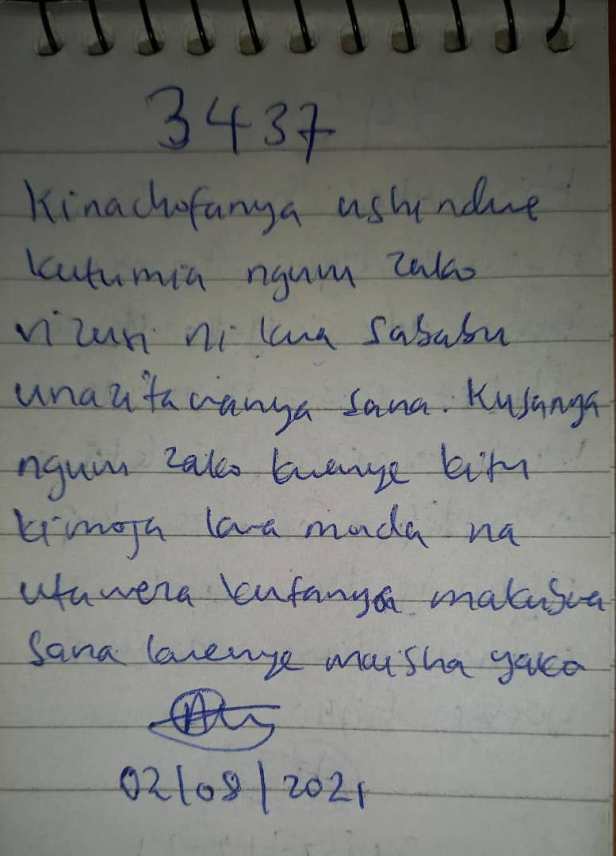 3437
Kinachofanya ushindwe
kutumia nguvu zako
vizuri ni kwa sababu
unazitawanya sana. Kusanya
nguvu zako kwenye kitu
kimoja kwa muda na
utaweza kufanya makubwa
sana kwenye maisha yako
02/08/2021